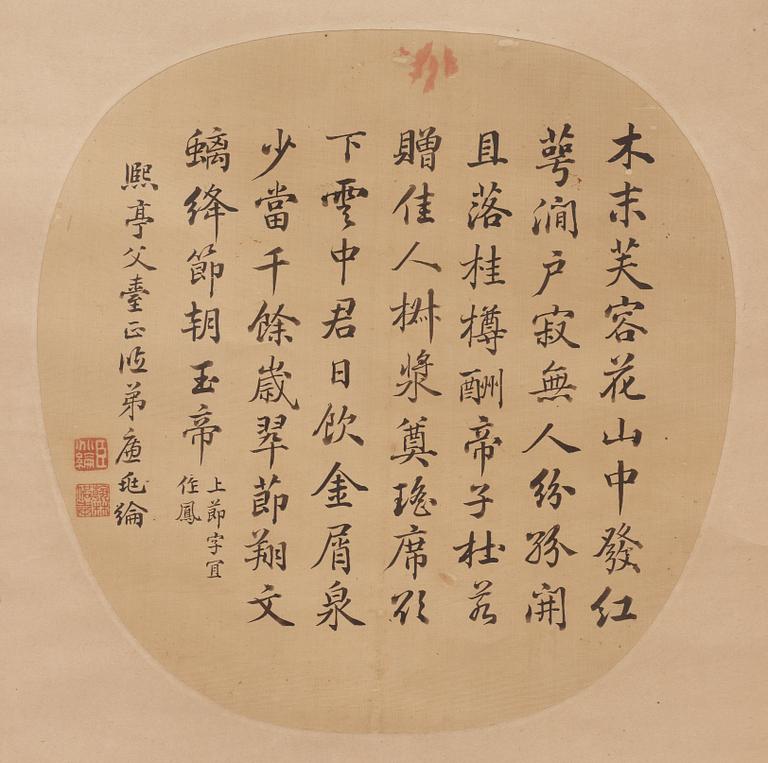 木末芙容花山中發紅
萼澗戶寂無人紛紛開
且落桂樽酬帝子杜若
贈佳人椒漿奠瑤席欲
下雲中君日飲金屑泉
少當千餘歲翠節翔文
螭絳節朝玉帝
上節字宜
作鳳
熙亭父臺正弟廉兆綸
臣兆綸